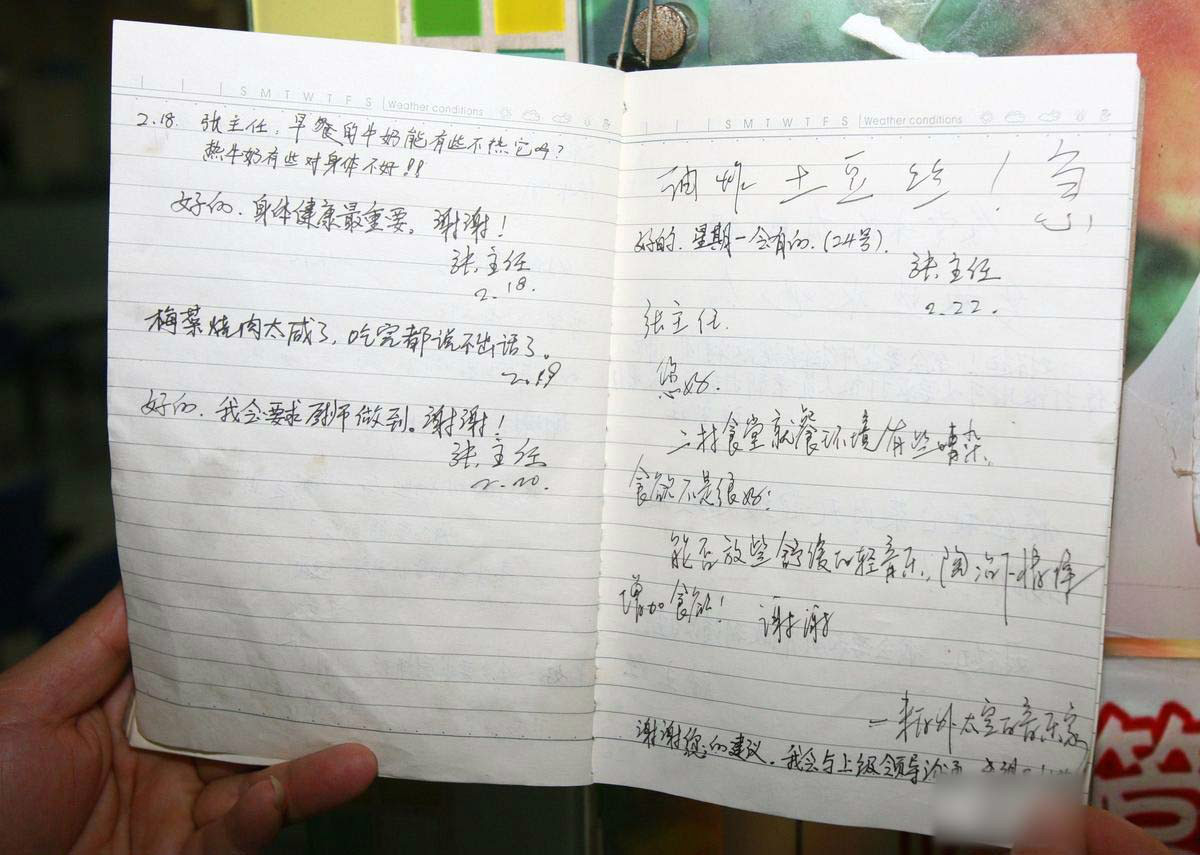 S M T W T F S Weather conditions
2.18. 张主任:早餐的牛奶能有些不热它吗?
热牛奶有些对身体不好!!
好的.身体健康最重要。谢谢!
张主任
2.18.
梅菜烧肉太咸了,吃完都说不出话了。
2.19
好的.我会要求厨师做到。谢谢!
张主任
2.20.
S M T W T F S Weather conditions
油炸土豆丝!急
好的.星期一会有的.(24号).
张主任
2.22.
张主任.
您好.
二村食堂就餐环境有些嘈杂.
食欲不是很好.
能否放些舒缓的轻音乐,陶冶下情操
增加食欲! 谢谢
一来自外太空的音乐家
谢谢您的建议。我会与上级领导